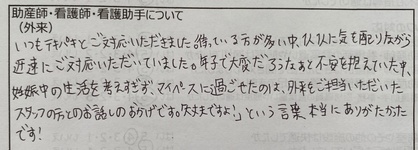 助産師・看護師・看護助手について
(外来)
いつもテキパキとご対応いただきました。待っている方が多い中、個人個人に気を配りながら
迅速にご対応いただいていました。年子で大変だろうなぁと不安を抱えていた中、
妊娠中の生活を考えすぎず、マイペースに過ごせたのは、外来をご担当いただいた
スタッフの方とのお話しのおかげです。「大丈夫ですよ!」という言葉、本当にありがたかった
です!